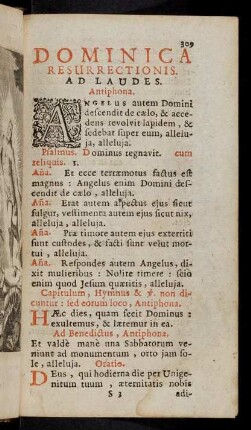 309
DOMINICA
RESURRECTIONIS.
AD LAUDES.
Antiphona.
ANGELUS autem Domini
descendit de cælo, & acce-
dens revolvit lapidem, &
sedebat super eum, allelu-
ja, alleluja.
Psalmus. Dominus regnavit. cum
reliquis. 1.
Aña. Et ecce terræmotus factus est
magnus : Angelus enim Domini des-
cendit de cælo , alleluja.
Aña. Erat autem aspectus ejus sicut
fulgur, vestimenta autem ejus sicut nix,
alleluja , alleluja.
Aña. Præ timore autem ejus exterriti
sunt custodes , & facti sunt velut mor-
tui , alleluja.
Aña. Respondes autem Angelus, di-
xit mulieribus : Nolite timere : scio
enim quod Jesum quæritis , alleluja.
Capitulum , Hymnus & ℣. non di-
cuntur : sed eorum loco , Antiphona.
HÆc dies, quam fecit Dominus :
exultemus , & lætemur in ea.
Ad Benedictus , Antiphona.
Et valdè manè una Sabbatorum ve-
niunt ad monumentum , orto jam so-
le , alleluja. Oratio.
DEus , qui hodierna die per Unige-
nitum tuum , æternitatis nobis
S 3 adi-